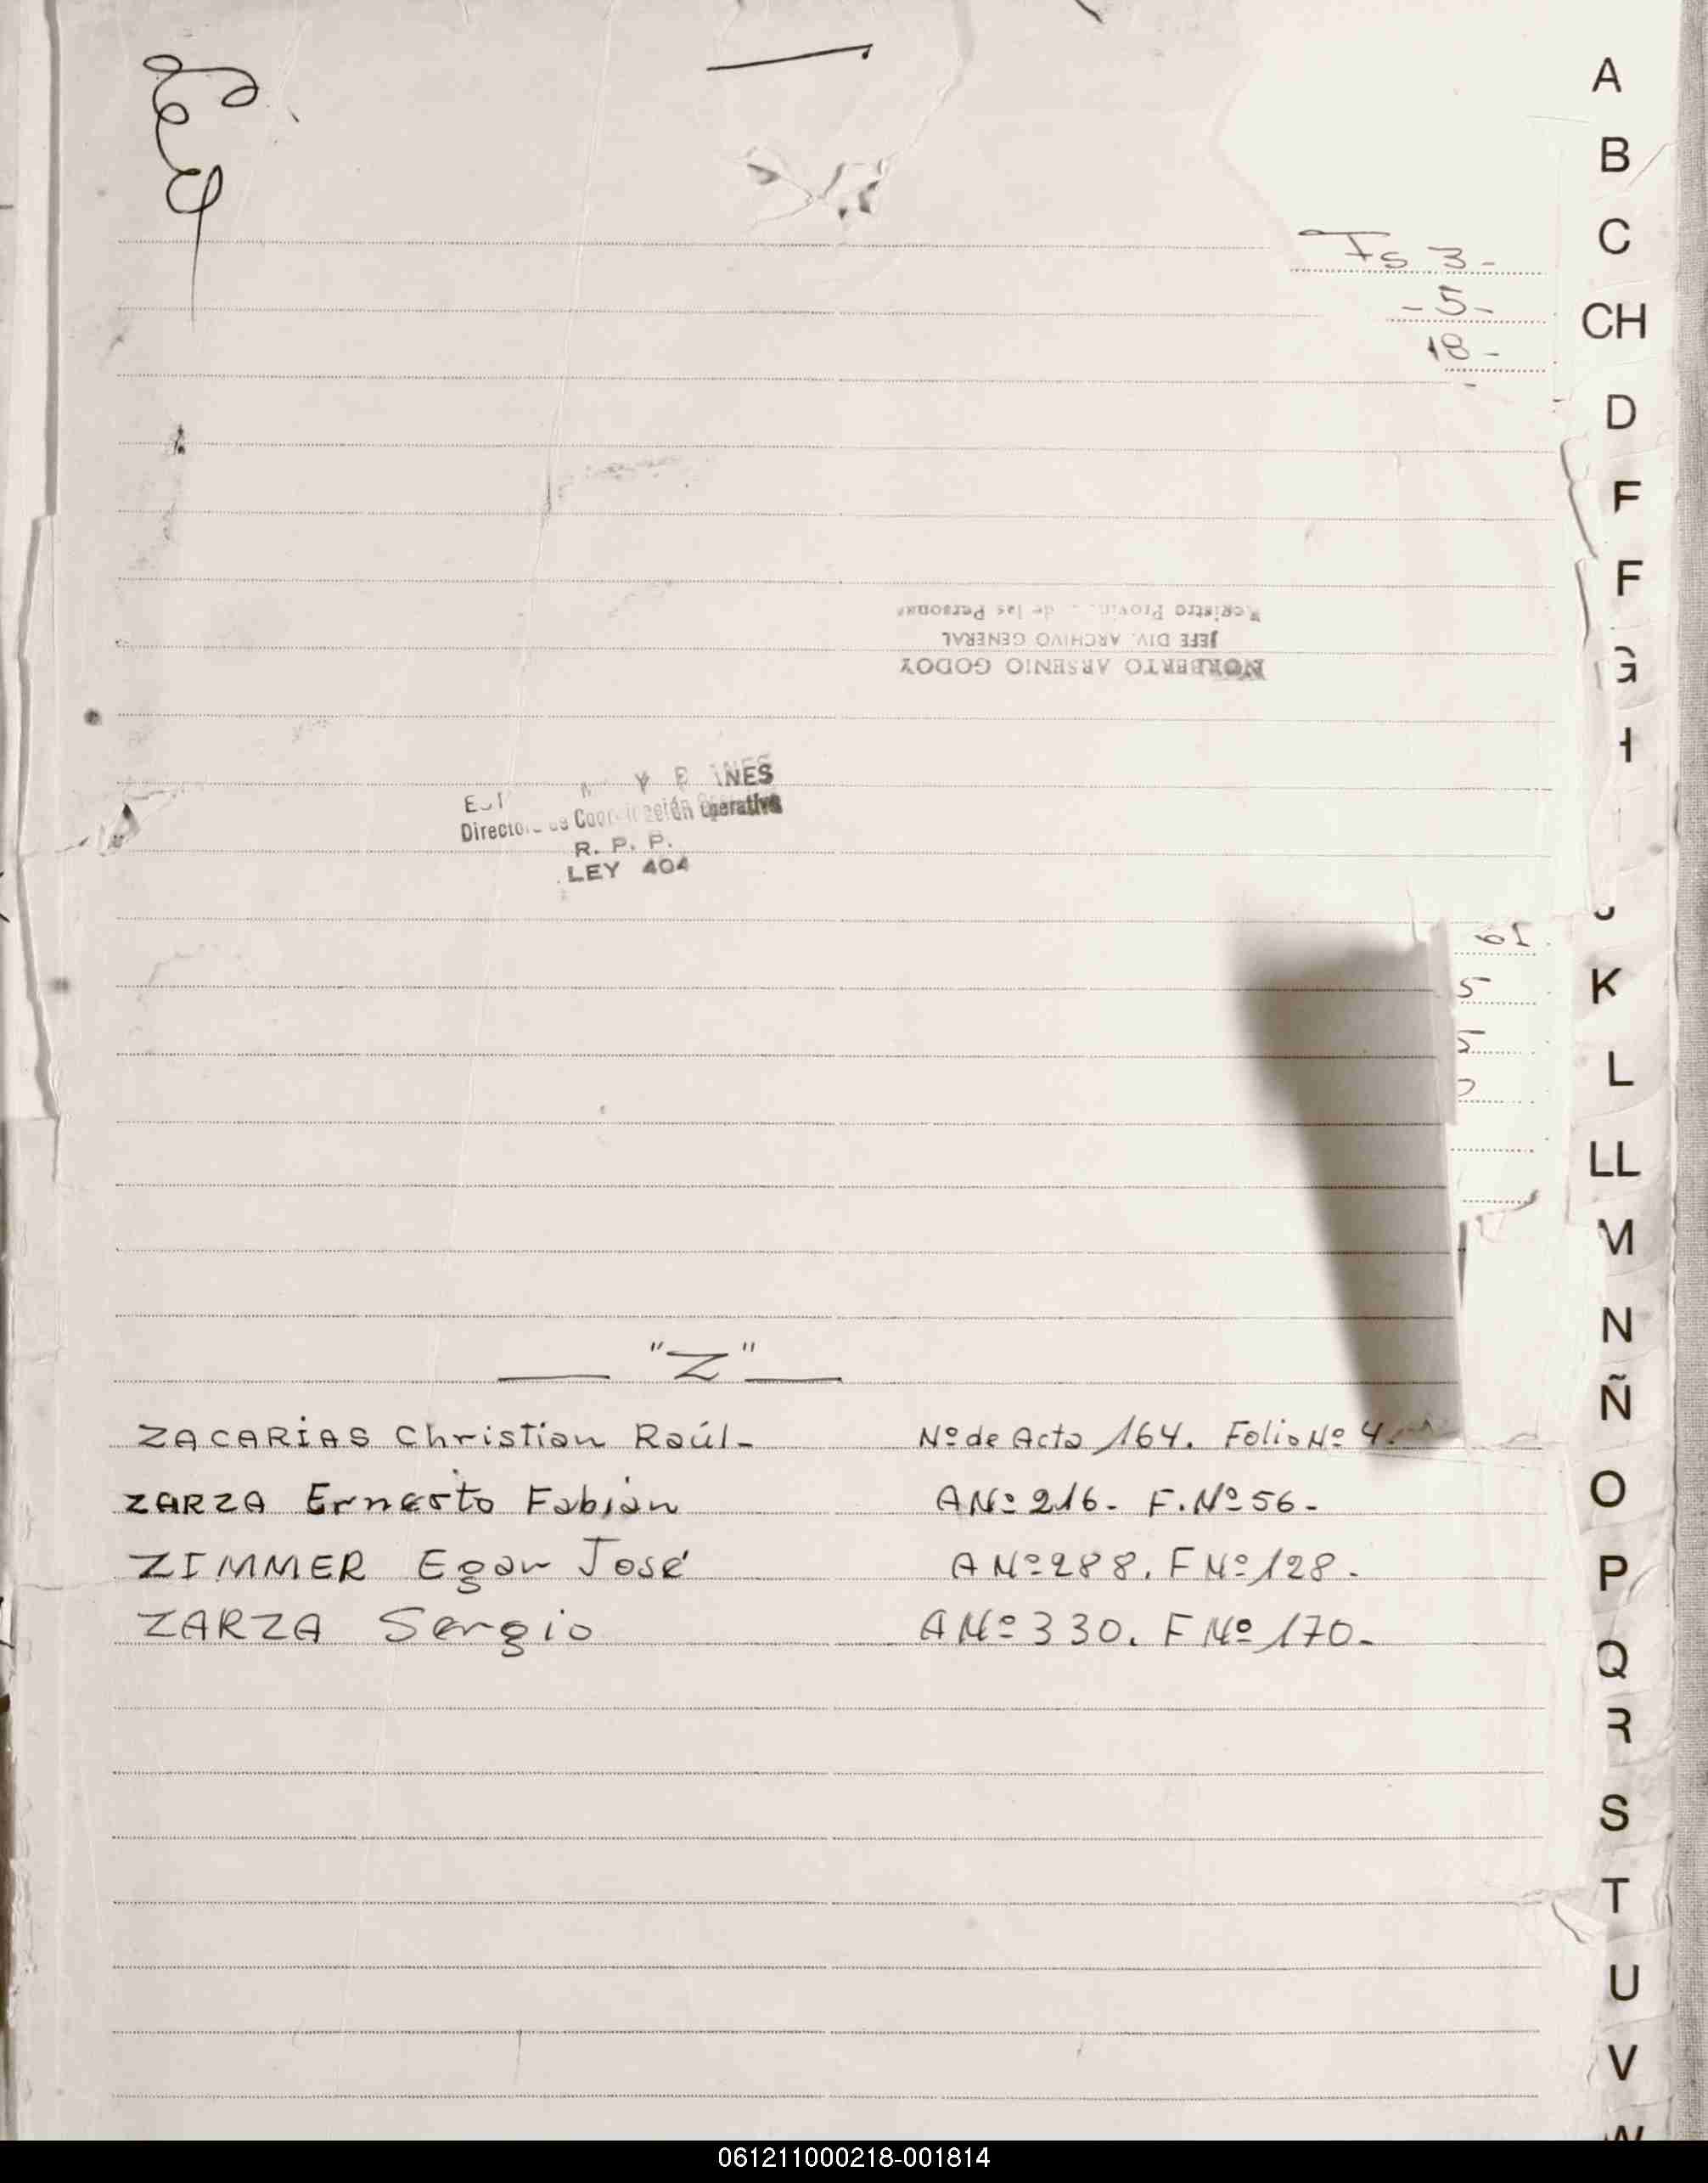 Fs 3-
-5-
18-
Registro de las Personas
JEFE DIV. ARCHIVO GENERAL
NORBERTO ARSENIO GODOY
Operativa
R. P. P.
LEY 404
61
5
5
"Z"
ZACARIAS Christian Raúl- Nº de Acta 164. Folio Nº 4.
ZARZA Ernesto Fabián A Nº 216- F. Nº 56-
ZIMMER Egar José A Nº 288. F Nº 128-
ZARZA Sergio A Nº 330. F Nº 170-
A
B
C
CH
D
F
F
G
H
J
K
L
LL
M
N
Ñ
O
P
Q
R
S
T
U
V
W
061211000218-001814